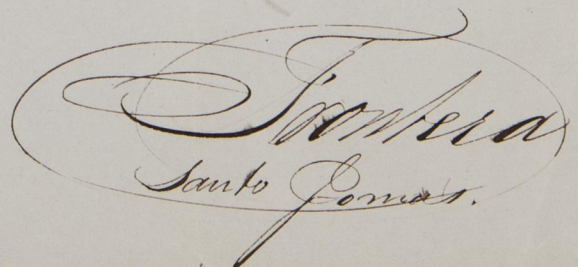 Frontera
Santo Tomás.